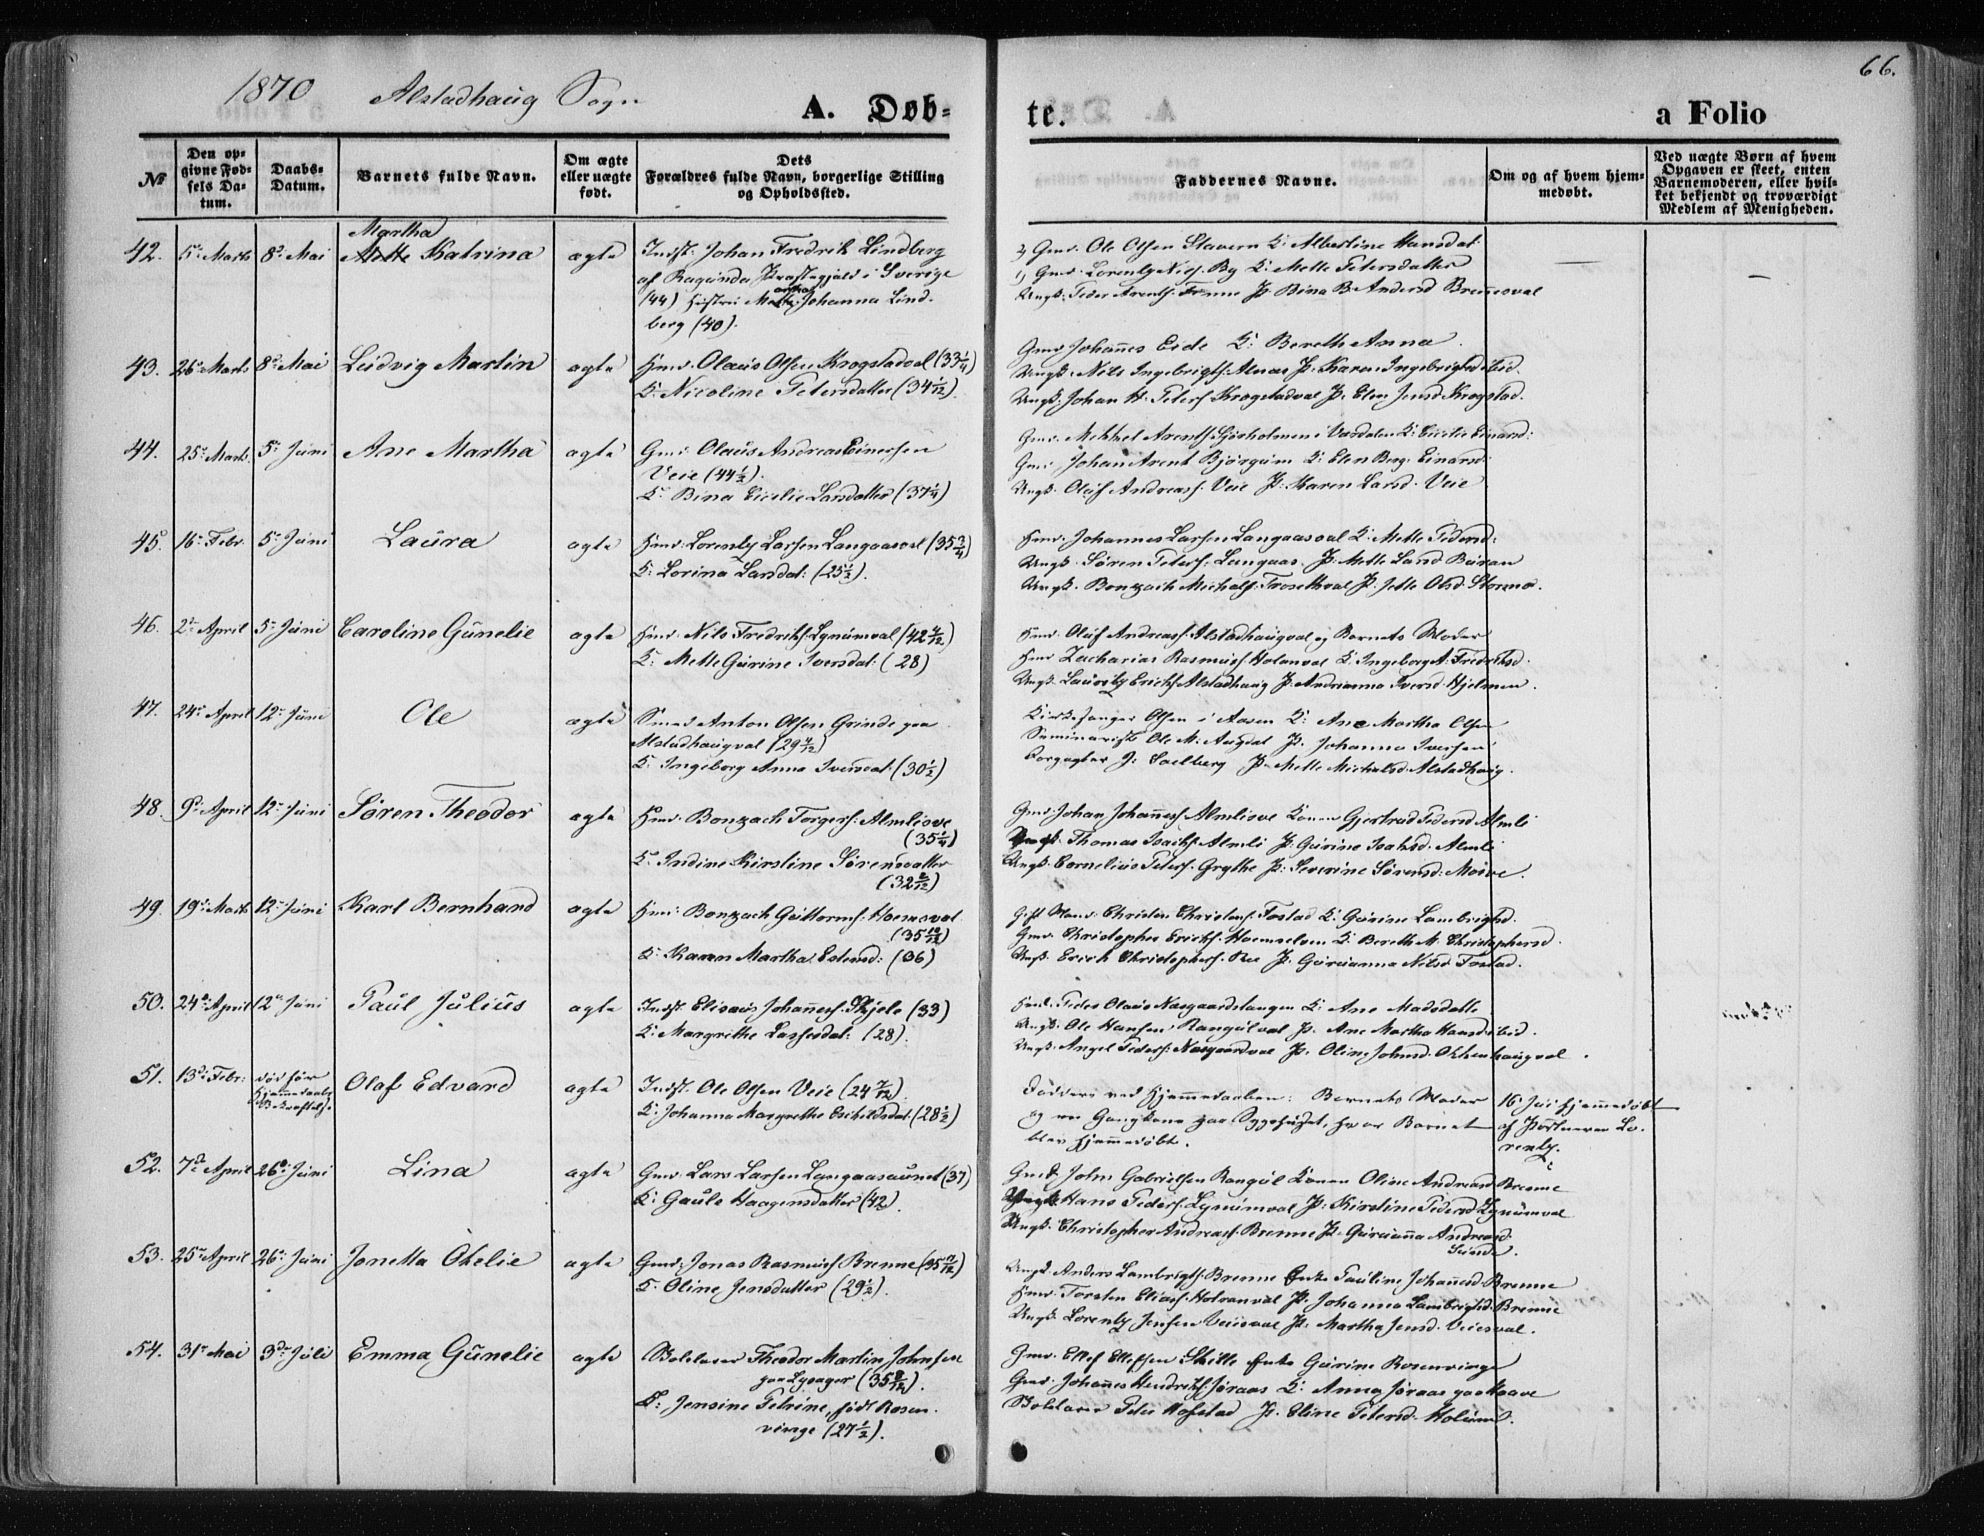 1870 Alstadhaug Sogn
A. Døb=
te.
a Folio
66.
№
Den op=
givne Fød=
sels Da=
tum.
Daabs=
Datum.
Barnets fulde Navn.
Om ægte
eller uægte
født.
Dets
Forældres fulde Navn, borgerlige Stilling
og Opholdssted.
Faddernes Navne.
Om og af hvem hjem=
medøbt.
Ved uægte Børn af hvem
Opgaven er skeet, enten
Barnemoderen, eller hvil=
ket bekjendt og troværdigt
Medlem af Menigheden.
Martha
42. 5te Marts 8de Mai Katrina ægte Indst. Johan Fredrik Lindberg
af Ragunda Præstegjeld i Sverige
(44) Hustru Johanna Lind-
berg (40).
Gmd. Ole Olsen Stavern K. Albertine Hansdat.
Gmd. Lorentz Nies. By K. Mette Petersdatter
43. 26de Marts 8de Mai Ludvig Martin ægte Hmd. Olaus Olsen Krogstadval (33 1/4)
K. Nicoline Petersdatter (34 1/12).
Gmd Johannes Eide K. Bereth Anna.
Ungk. Nils Ingebrigts. Alnas P. Karen Ingebrigtsd. ibid.
Ungk. Johan H. Peters. Krogstadval P. Elen Jensd. Krogstad.
44. 25de Marts 5te Juni Ane Martha ægte Gmd. Olaus Andreas Einersen
Veie (44 1/2).
K. Bina Cicilie Larsdatter (37 1/4)
Gmd. Johan Arent Bjørgum K. Elen Berg. Einarsd.
Ungk. Oluf Andreass. Veie P. Karen Larsd. Veie
45. 16de Febr. 5te Juni Laura ægte Hmd. Lorentz Larsen Langaasval (35 3/4)
K. Lorina Larsdat. (25 1/2).
Hmd. Johannes Larsen Langaasval K. Mette Pedersd.
Ungk. Søren Peters. Langaas P. Mette Larsd Buran
46. 2den April 5te Juni Caroline Gunelie ægte Hmd. Nils Fredriks. Lynumval (42 4/12)
K. Mette Gurine Iversdat. (28)
Hmd. Oluf Andreass. Alstadhaugval og Barnets Moder
Hmd Zacharias Rasmus. Holanval K. Ingeborg A. Fredriksd.
Ungk. Lauritz Erichs. Alstadhaug P. Andrianna Iversd. Hjelmen.
47. 24de April 12te Juni Ole ægte Smed Anton Olsen Grinde paa
Alstadhaugval (29 4/12)
K. Ingeborg Anna Iversdat. (30 1/2)
Kirkesanger Olsen i Aasen K. Ane Martha Olsen
Seminarist Ole M. Augdal P. Johanna Iversen
P. Mette Michalsd. Alstadhaug.
48. 9de April 12te Juni Søren Theodor ægte Hmd. Bonzach Torgers. Almlisve
(35 1/4)
K. Indine Kirstine Sørensdatter
(32 8/12)
Gmd Johan Johannes. Almlisve Konen Gjertrud Pedersd Almli
Ungk. Thomas Isachs. Almli P. Gurine Isaksd. Almli
Ungk. Cornelius Peters. Grythe P. Severine Sørensd. Mosve.
49. 19de Marts 12te Juni Karl Bernhard ægte Hmd. Bonzach Guttorms. Hoemsval
(35 10/12)
K. Karen Martha Estensd. (36)
Gift Mand Christen Christens. Fostad K. Gurine Lambrigtsd.
Gmd. Christopher Erichs. K. Bereth M. Christophersd.
Ungk. Erich Christophers. P. Gurianna Nilsd. Fostad.
50. 24de April 12te Juni Paul Julius ægte Indst. Elisæus Johannes. Skjele (33)
K. Margrethe Lassesdat. (28).
Hmd. Peder Olaus Nausgaardslangen K. Ane Madsdatte
Ungk. Ole Hansen Rangulval P. Ane Martha Hansd. ibid.
51. 13de Febr. død før
Hjemmedaabs
Bekræftelse Olaf Edvard ægte Indst. Ole Olsen Veie (24 7/12)
K. Johanna Margrethe Eschildsdat. (28 1/2)
Faddere ved Hjemmedaaben: Barnets Moder
og en Gangkone paa Sygehuset, hvor Barnet
blev hjemmedøbt.
hjemmedøbt
af Portneren Lo-
rentz.
52. 7de April 26de Juni Lina ægte Gmd. Lars Larsen Langaasaunet (37)
K. Gaule Haagensdatter (42).
Gmd. John Gabrielsen Rangul Konen Oline Andreasd Brenne
Ungk. Hans Peders. Lynumval P. Kirstine Pedersd Lynumval
Ungk. Christopher Andreas. Brenne P. Gurianna Andreasd.
53. 25de April 26de Juni Jonetta Otelie ægte Gmd. Jonas Rasmus. Brenne (35 /12)
K. Oline Jensdatter (29 1/2).
Ungk. Anders Lambrigts. Brenne Enke Pauline Johannesd. Brenne
Hmd. Torsten Elias. Holvanval P. Johanna Lambrigtsd. Brenne
Ungk. Lorentz Jensen Veiesval P. Martha Jensd. Veiesval.
54. 31te Mai 3die Juli Emma Gunelie ægte Boelslaver Theodor Martin Johnsen
paa Lysager (35 8/12).
K. Jensine Petrine, født Rosen-
vinge (27 1/2).
Gmd. Ellef Ellefsen Skille Enke Gurine Rosenvinge
Gmd. Johannes Hendriks. Joraas K. Anna Joraas paa Haave
Peter Hofstad P. Eline Petersd. Holum.